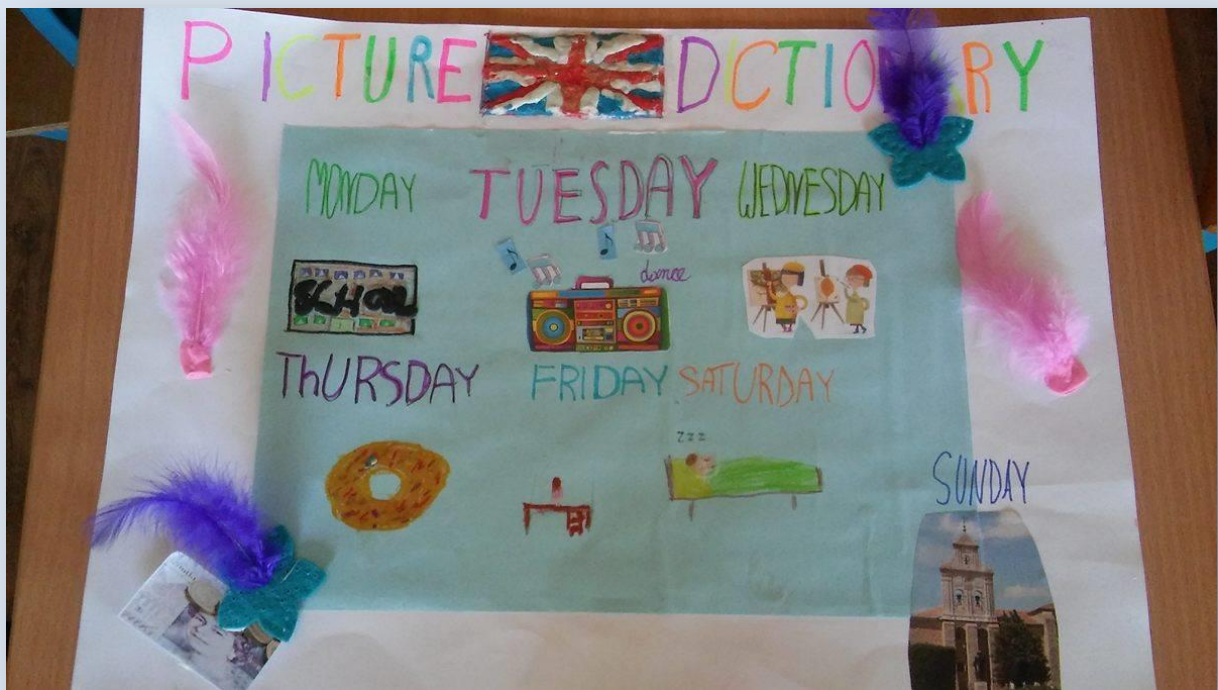 PICTURE DICTIONARY
MONDAY TUESDAY WEDNESDAY
dance
SCHOOL
THURSDAY FRIDAY SATURDAY
zzz
SUNDAY